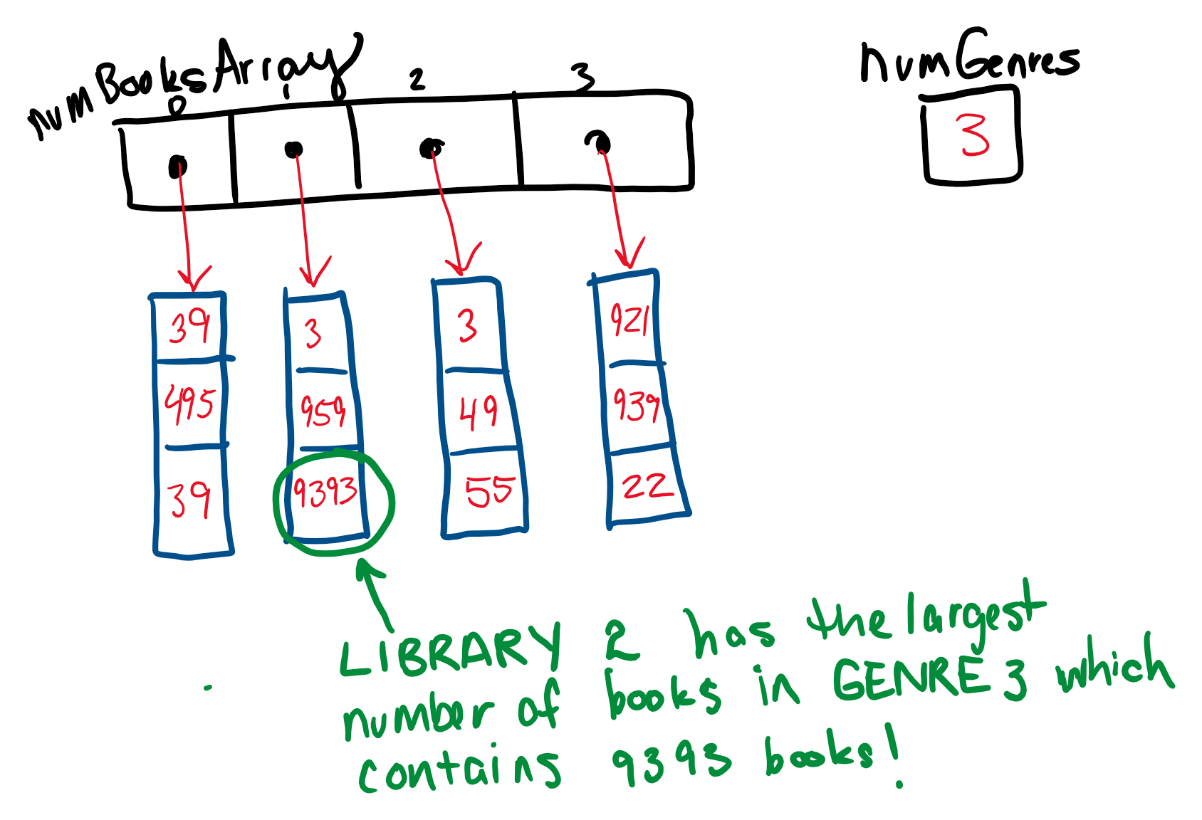 numBooksArray
numGenres
0 1 2 3
3
39 3 3 921
495 959 49 939
39 9393 55 22
LIBRARY 2 has the largest
number of books in GENRE 3 which
contains 9393 books!